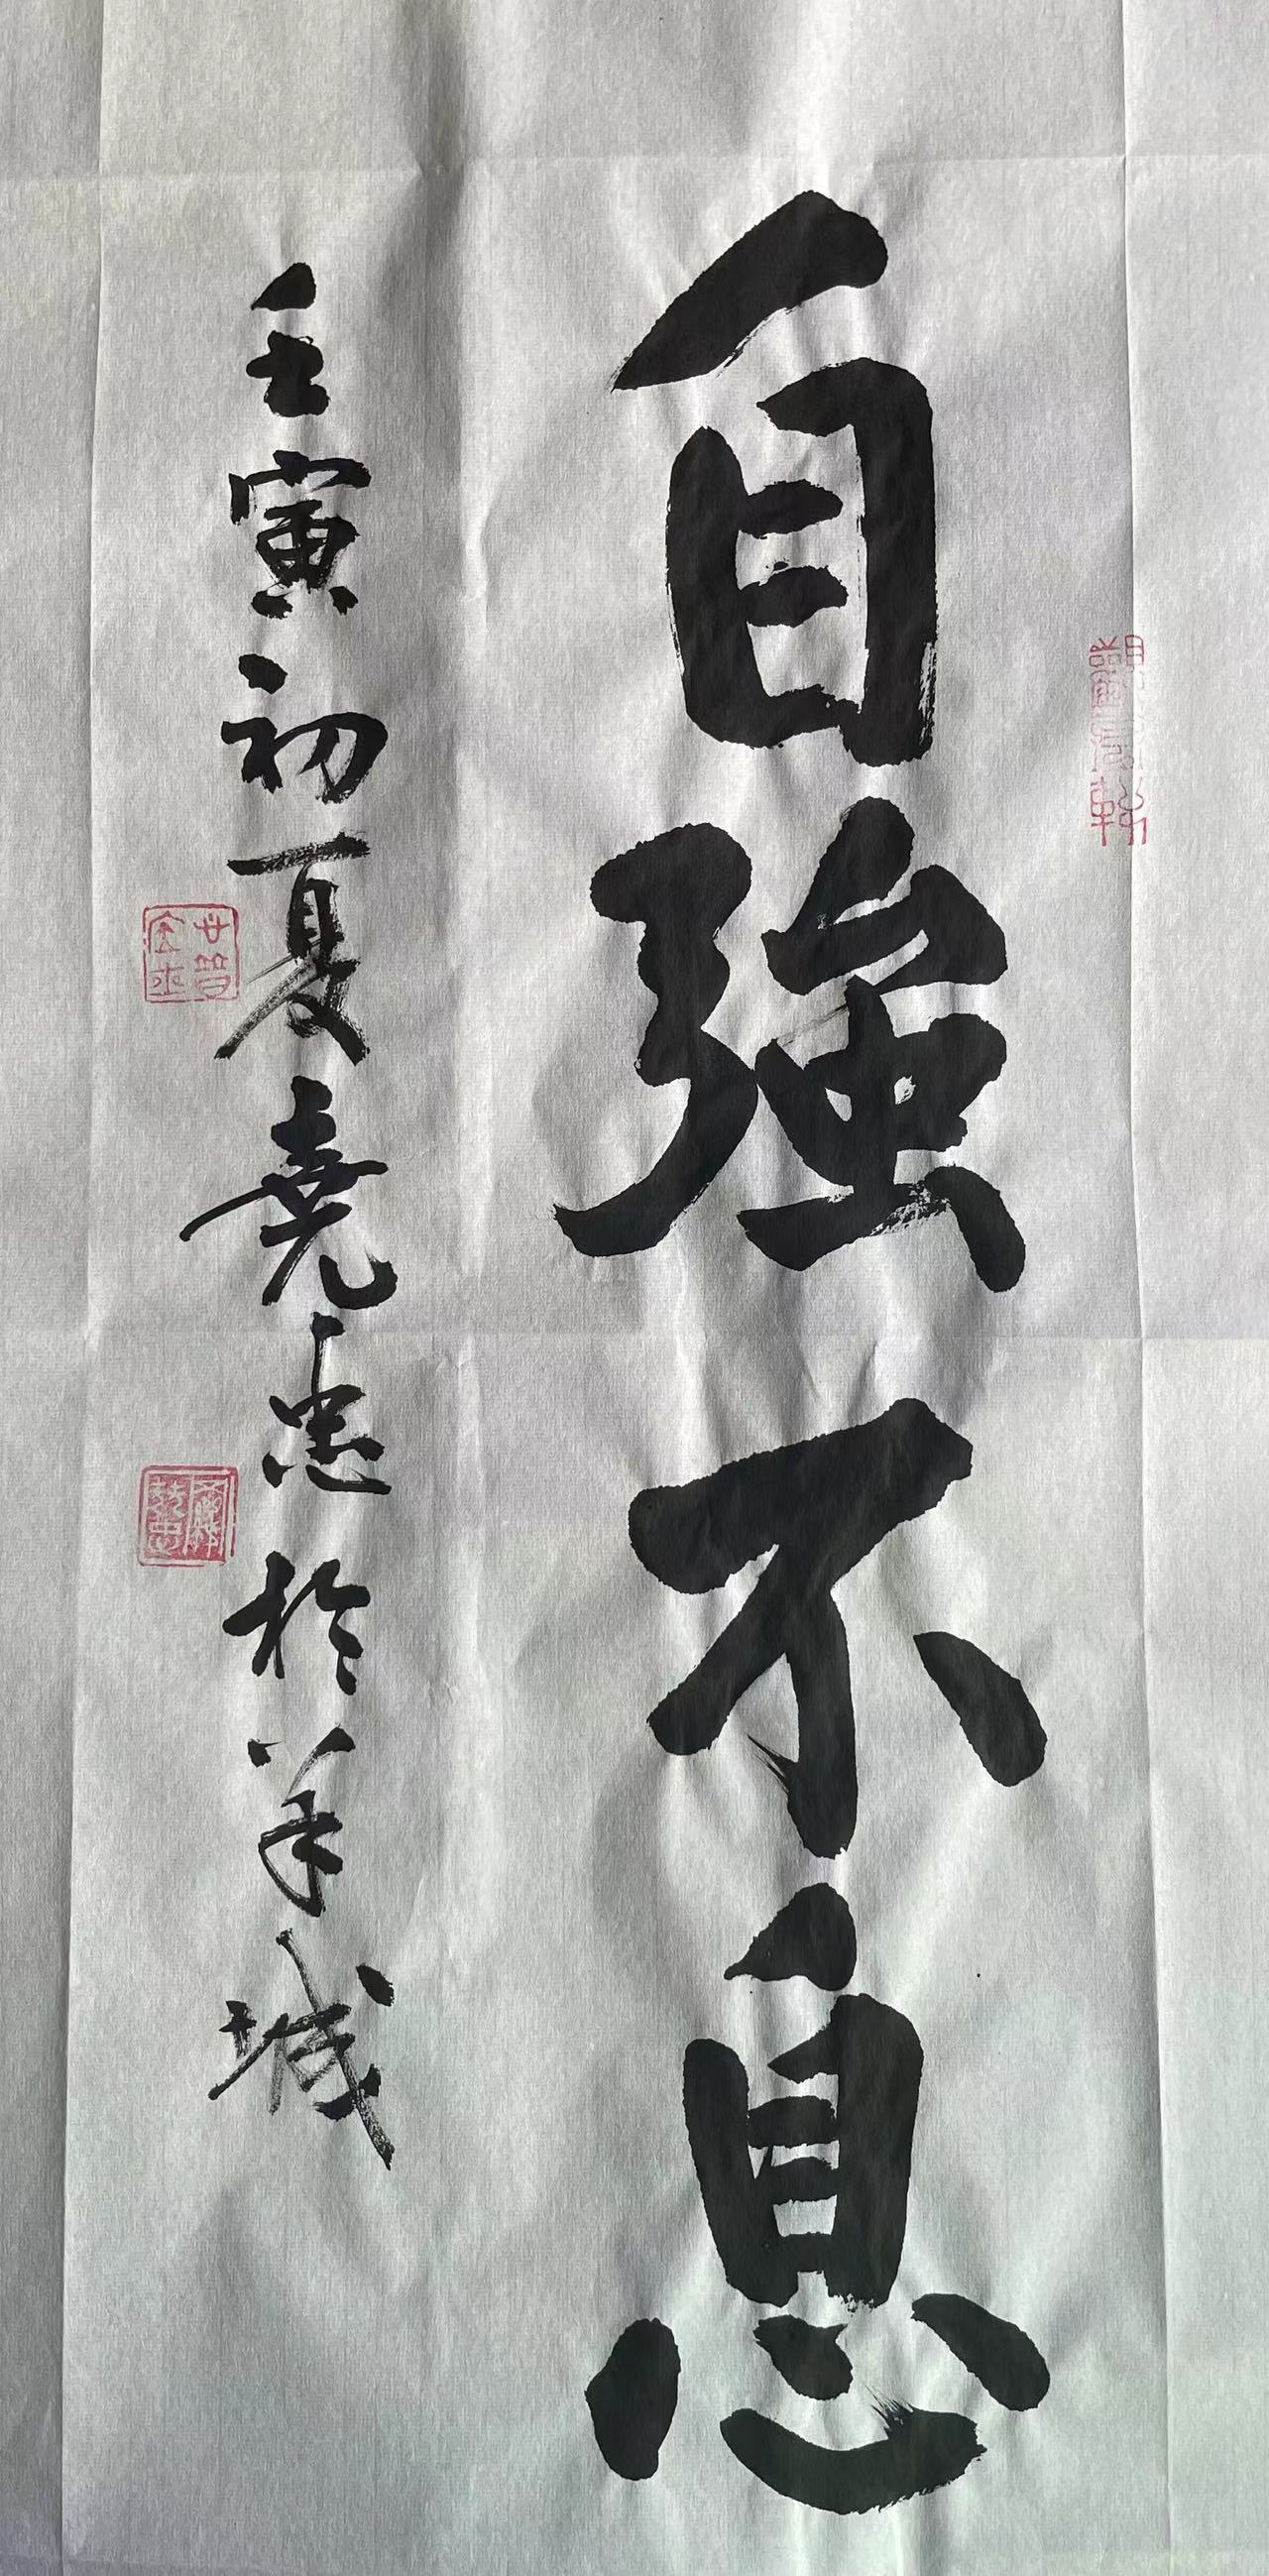 自強不息
壬寅初夏堯忠於羊城